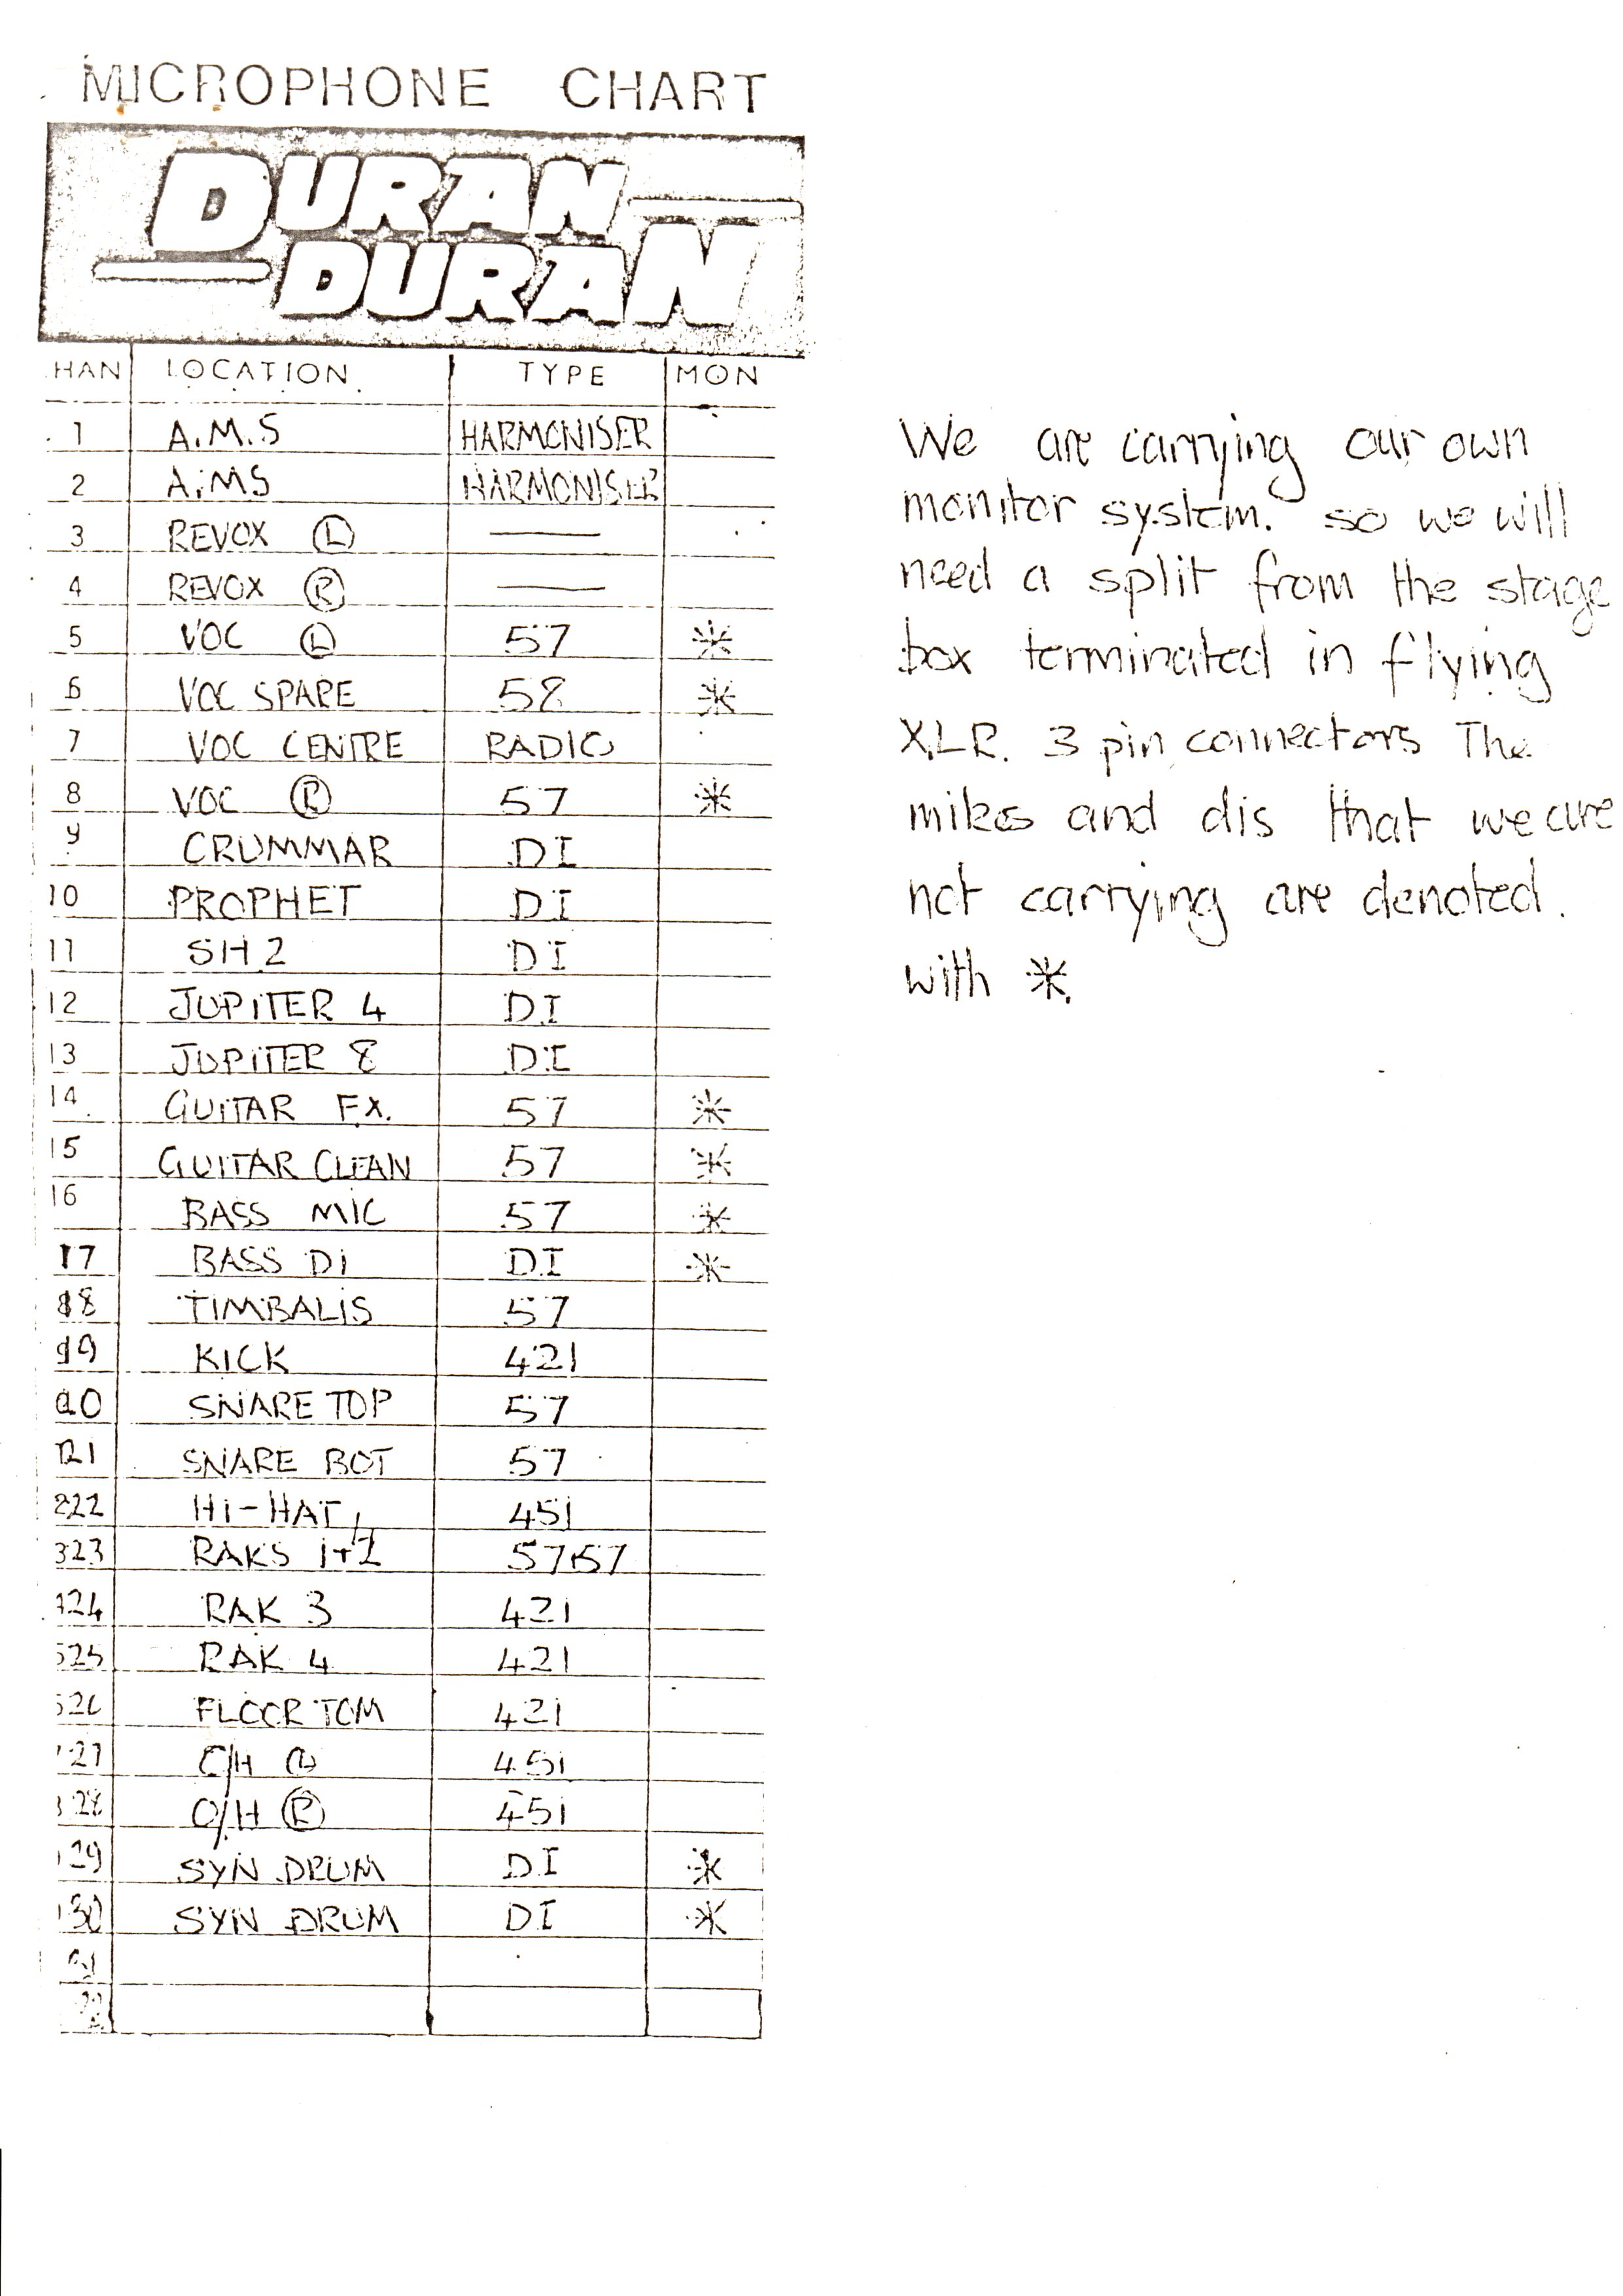 MICROPHONE CHART
DURAN
DURAN
HAN LOCATION TYPE MON
1 A.M.S HARMONISER
2 A.MS HARMONISER
3 REVOX L —
4 REVOX R —
5 VOC L 57 *
6 VOC SPARE 58 *
7 VOC CENTRE RADIO
8 VOC R 57 *
9 CRUMMAR DI
10 PROPHET DI
11 SH2 DI
12 JUPITER 4 DI
13 JUPITER 8 DI
14 GUITAR FX. 57 *
15 GUITAR CLEAN 57 *
16 BASS MIC 57 *
17 BASS Di DI *
18 TIMBALIS 57
19 KICK 421
20 SNARE TOP 57
21 SNARE BOT 57
22 Hi-HAT 451
23 RAKS 1+2 57+57
24 RAK 3 421
25 RAK 4 421
26 FLOOR TOM 421
27 O/H L 451
28 O/H R 451
29 SYN DRUM DI *
30 SYN DRUM DI *
We are carrying our own
monitor system. so we will
need a split from the stage
box terminated in flying
X.L.R. 3 pin connectors The
mikes and dis that we are
not carrying are denoted.
with *.